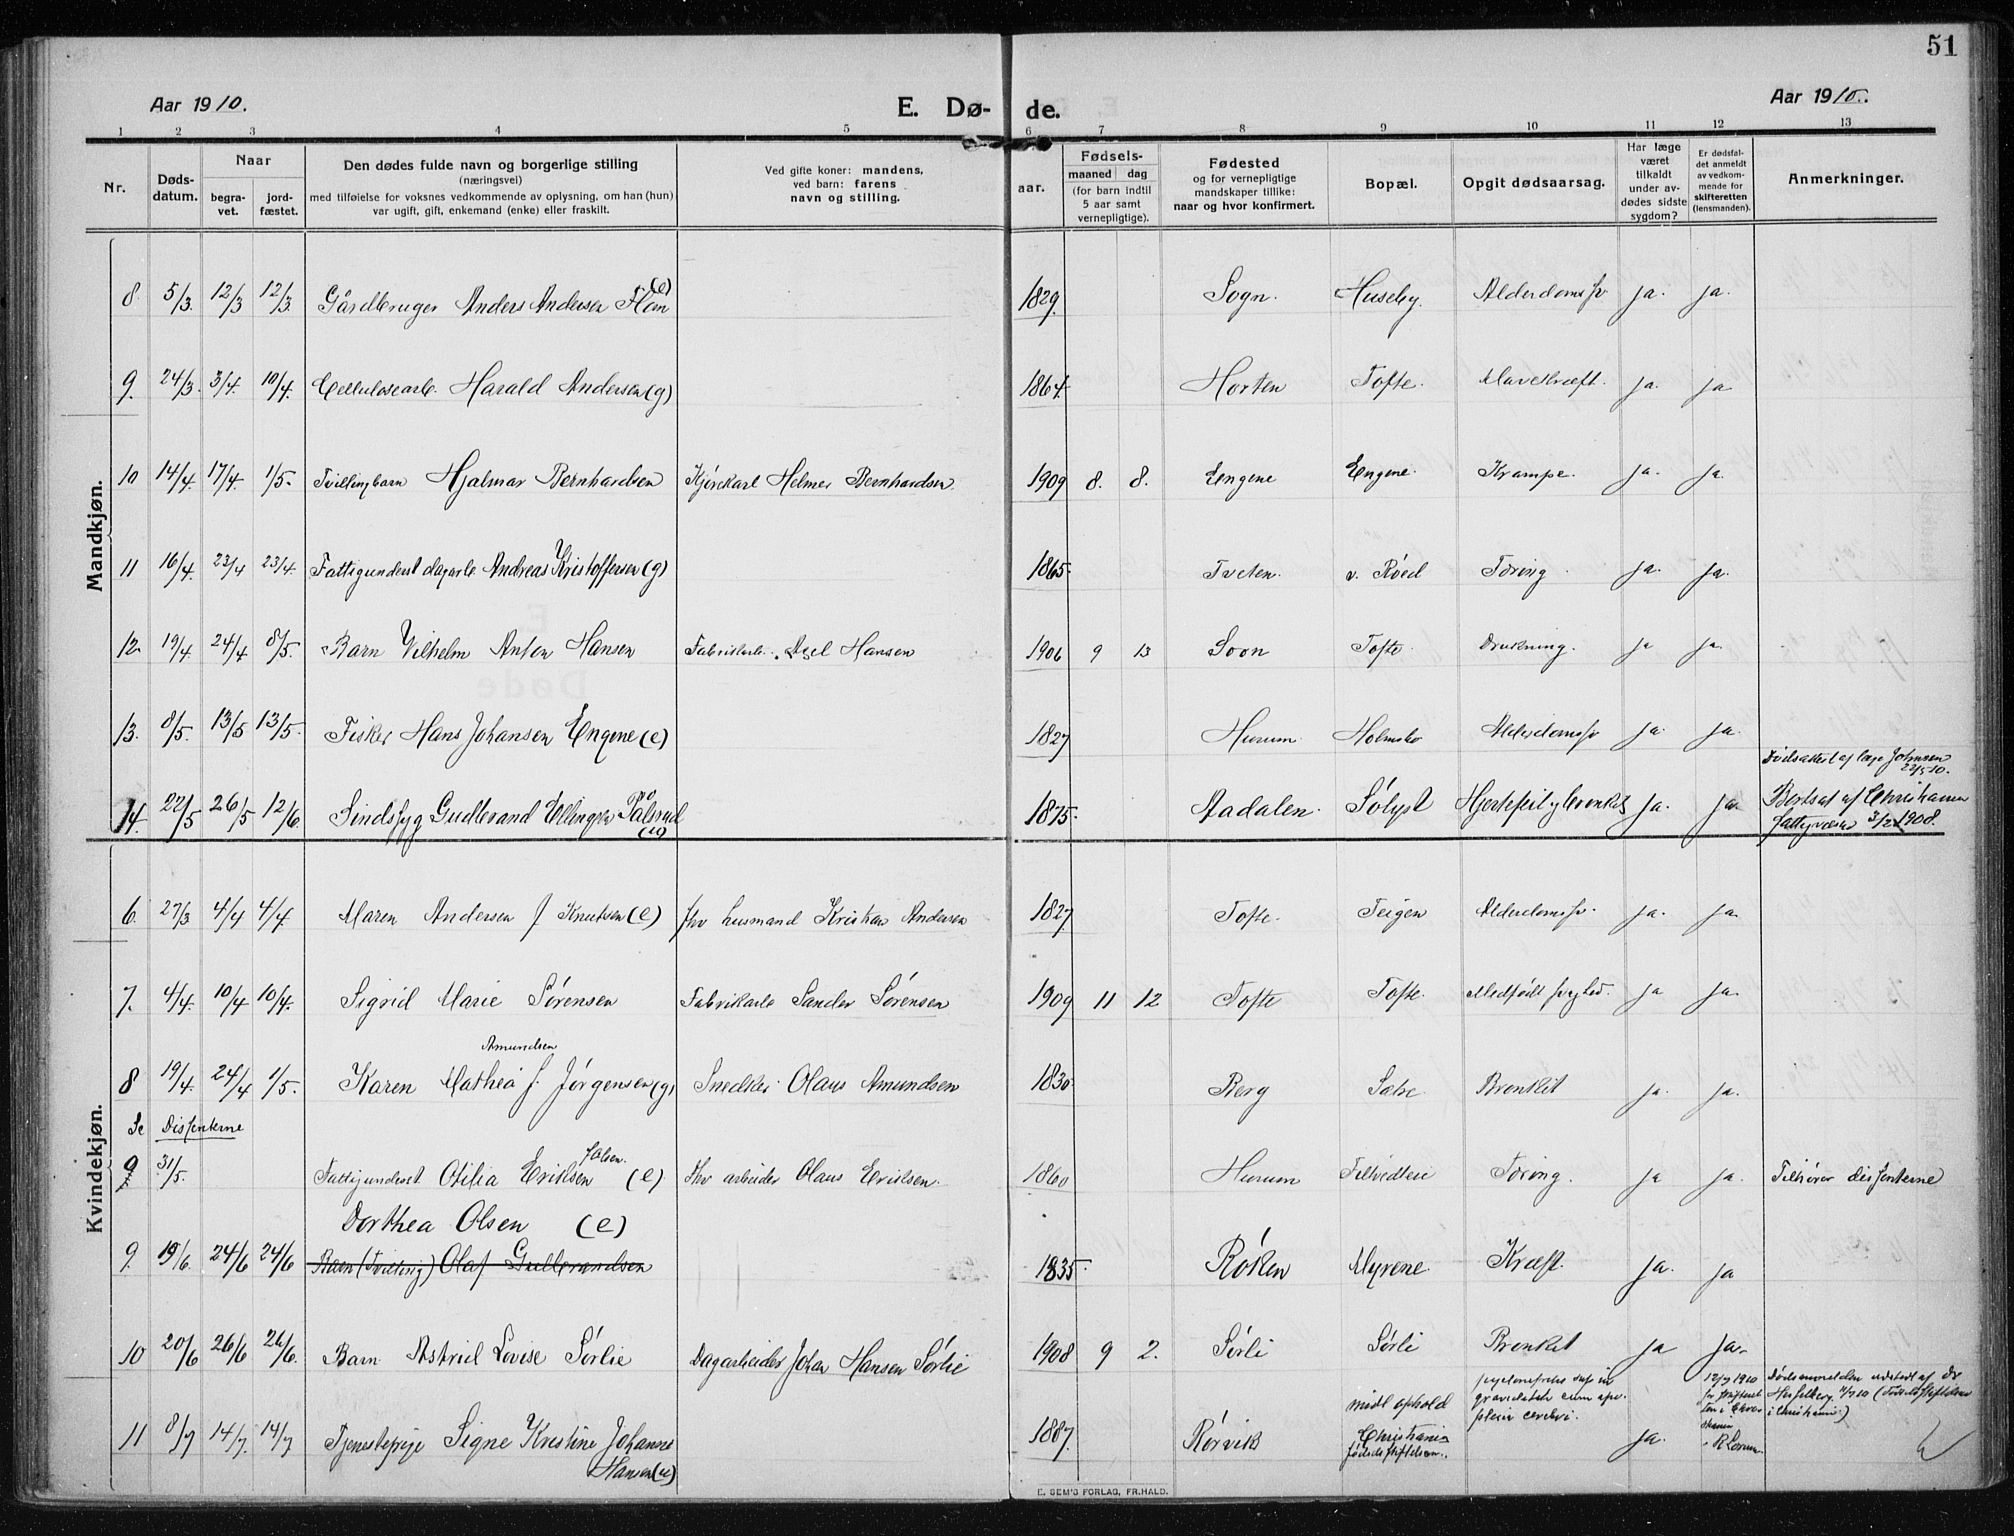 51
Aar 1910. E. Dø- de. Aar 1910.
1 2 3 4 5 6 7 8 9 10 11 12 13
Nr.
Døds-
datum.
Naar
begra-
vet.
jord-
fæstet.
Den dødes fulde navn og borgerlige stilling
(næringsvei)
med tilføielse for voksnes vedkommende av oplysning, om han (hun)
var ugift, gift, enkemand (enke) eller fraskilt.
Ved gifte koner: mandens,
ved barn: farens
navn og stilling.
aar.
Fødsels-
maaned dag
(for barn indtil
5 aar samt
vernepligtige).
Fødested
og for vernepligtige
mandskaper tillike:
naar og hvor konfirmert.
Bopæl.
Opgit dødsaarsag.
Har læge
været
tilkaldt
under av-
dødes sidste
sygdom?
Er dødsfal-
det anmeldt
av vedkom-
mende for
skifteretten
(lensmanden).
Anmerkninger.
Mandkjøn.
8. 5/3. 12/3 12/3. Gårdbruger Anders Andersen (e) 1829. Sogn. Huseby. Alderdomssv. ja. ja.
9. 24/3. 3/4. 10/4. Cellulosearb. Harald Andersen (g) 1864. Horten Tofte. Mavekræft. ja. ja
10 14/4. 17/4. 1/5- Tvillingbarn Hjalmar Bernhardsen Kjørekarl Helmer Bernhardsen. 1909 8. 8. Engene Engene. Krampe. ja. ja.
11 16/4. 23/4 23/4. Fattigunderst dagarb. Andreas Kristoffersen (g) 1865. Tveten. v. Røed Tæring. ja. ja.
12 19/4. 24/4 8/5. Barn Vilhelm Anton Hansen Fabrikarb. Axel Hansen 1906 9 13 Soon Tofte. Drukning. ja ja.
13. 8/5. 13/5 13/5. Fisker Hans Johansen Engene (e) 1827 Hurum. Holmsbo Alderdomssv ja. ja.
Dødsattest af læge Johnsen
22/5 10.
14. 22/5 26/5 12/6 Sindssyg Gudbrand Ellingsen (u) 1875. Aadalen. Sølyst Hjertefeil og bronkit ja. ja. Bortsat af Christiania
3/2 1908.
Kvindekjøn.
6. 27/3 4/4 4/4. Maren Andersen f. Knutsen (e) fhv husmand Kristian Andersen 1827 Tofte. Teigen Alderdomssv. ja. ja.
7. 4/4. 10/4 10/4. Sigrid Marie Sørensen Fabrikarb Sander Sørensen 1909 11 12 Tofte Tofte. Medfødt svaghed. ja ja.
Amundsen
8 19/4. 24/4 1/5. Karen Mathea f. Jørgensen (g) Snedker Olaus Amundsen 1830. Berg Sætre. Bronkit ja. ja.
Se Dissenterne
9 31/5. Fattigunderst Otilia Eriksen (e) fhv arbeider Olaus Eriksen. 1860 Hurum Tæring. ja ja Tilhører dissenterne
Dorthea Olsen (e)
9. 19/6. 24/6 24/6 Barn (Tvilling) Olaf Gulbrandsen 1835. Røken Myrene. Kræft. ja. ja
10 20/6 26/6 26/6. Barn Astrid Lovise Sørlie Dagarbeider Johan Hansen Sørlie 1908 9 2. Sørli Sørli Bronkit ja ja.
11 8/7 14/7. 14/7 Tjenestepige Signe Kristine Johanne
Hansen (u) 1887. Rørvik midl ophold
Christiania
fødselsstiftelsen. ja. 12/7 1910
E. SEM'S FORLAG, FR.HALD.